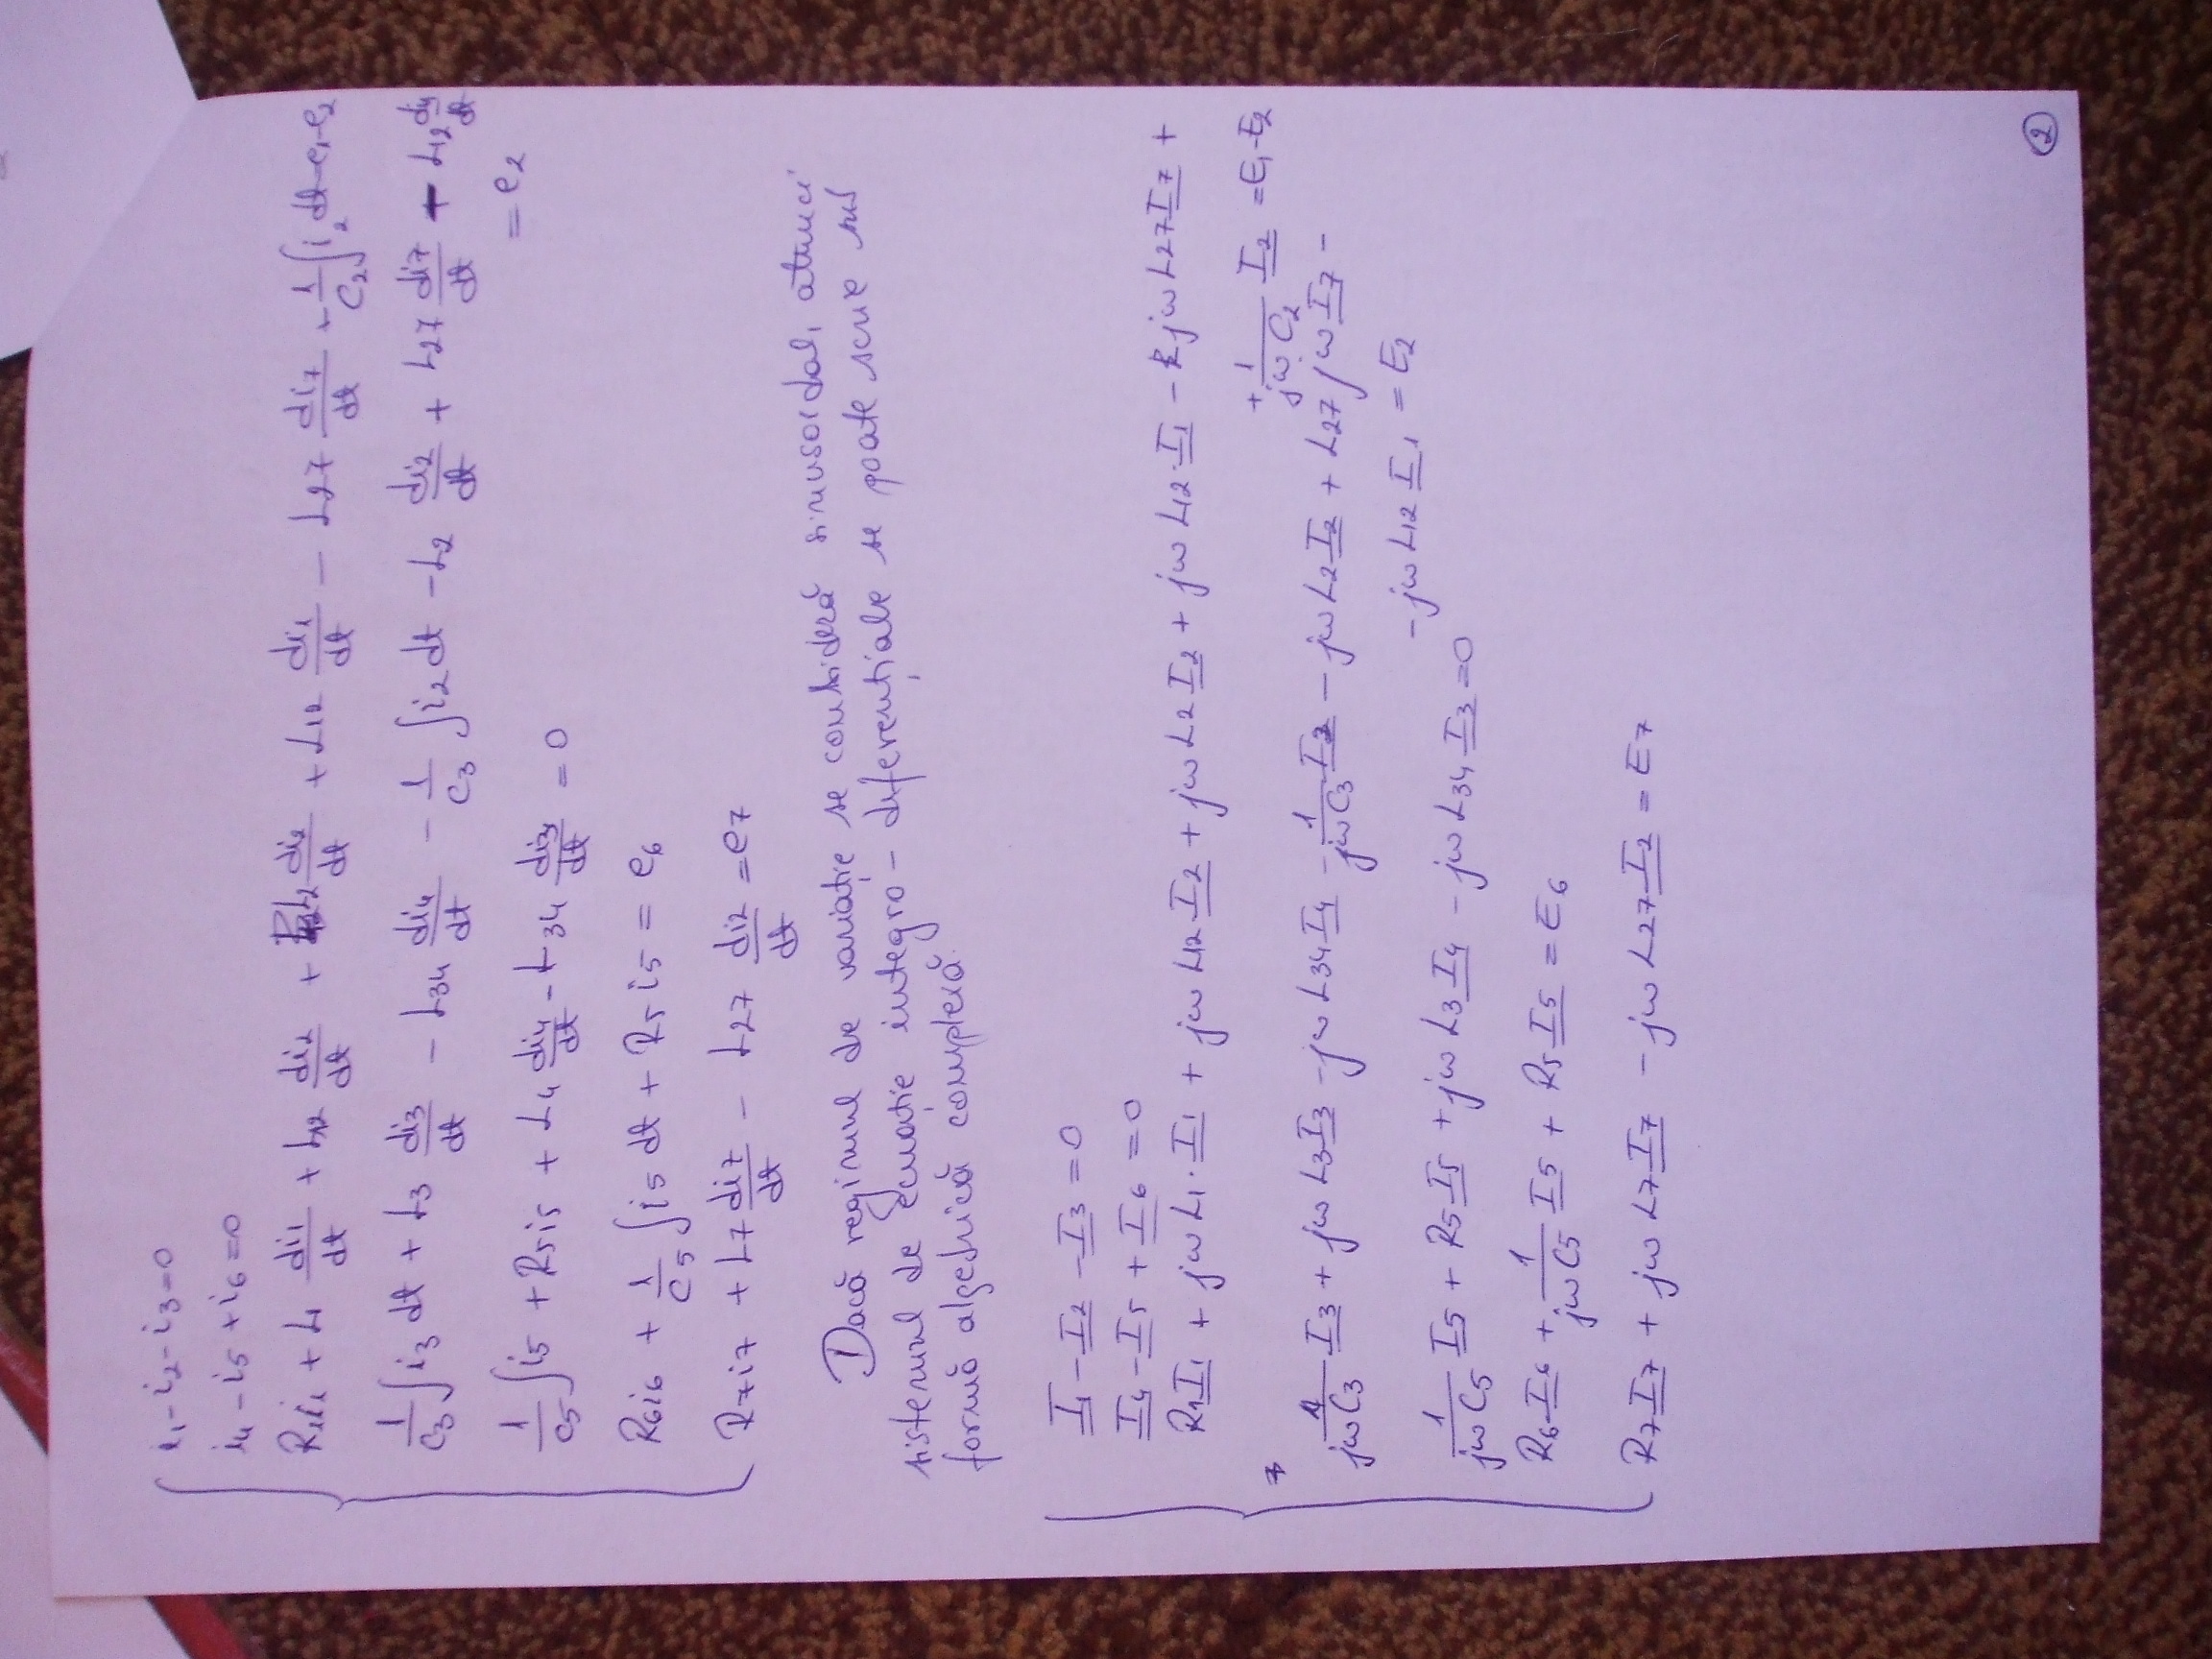 i₁ - i₂ - i₃ = 0
i₄ - i₅ + i₆ = 0
R₁i₁ + L₁ di₁/dt + L₁₂ di₂/dt + L₂ di₂/dt + L₁₂ di₁/dt - L₂₇ di₇/dt + 1/C₂ ∫i₂ dt = e₁-e₂
1/C₃ ∫i₃ dt + L₃ di₃/dt - L₃₄ di₄/dt - 1/C₃ ∫i₂ dt - L₂ di₂/dt + L₂₇ di₇/dt - L₁₂
= e₂
1/C₅ ∫i₅ + R₅i₅ + L₄ di₄/dt - L₃₄ = 0
R₆i₆ + 1/C₅ ∫i₅ dt + R₅i₅ = e₆
R₇i₇ + L₇ di₇/dt - L₂₇ di₂/dt = e₇
Dacă regimul de variație se consideră sinusoidal, atunci
sistemul de ecuație integro-diferențiale se poate scrie sub
formă algebrică complexă.
I₁ - I₂ - I₃ = 0
I₄ - I₅ + I₆ = 0
R₁I₁ + jωL₁·I₁ + jωL₁₂I₂ + jωL₂I₂ + jωL₁₂·I₁ - jωL₂₇I₇ +
+ 1/jωC₂ I₂ = E₁-E₂
1/jωC₃ I₃ + jωL₃I₃ - jωL₃₄I₄ - 1/jωC₃ I₂ - jωL₂I₂ + L₂₇jωI₇ -
- jωL₁₂I₁ = E₂
1/jωC₅ I₅ + R₅I₅ + jωL₃I₄ - jωL₃₄I₃ = 0
R₆I₆ + 1/jωC₅ I₅ + R₅I₅ = E₆
R₇I₇ + jωL₇I₇ - jωL₂₇I₂ = E₇
2